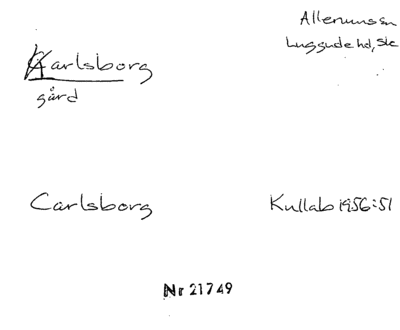 Allerums sn
Luggude hd, Sk
Karlsborg
gård
Carlsborg
Kullab 1956:51
Nr 21749